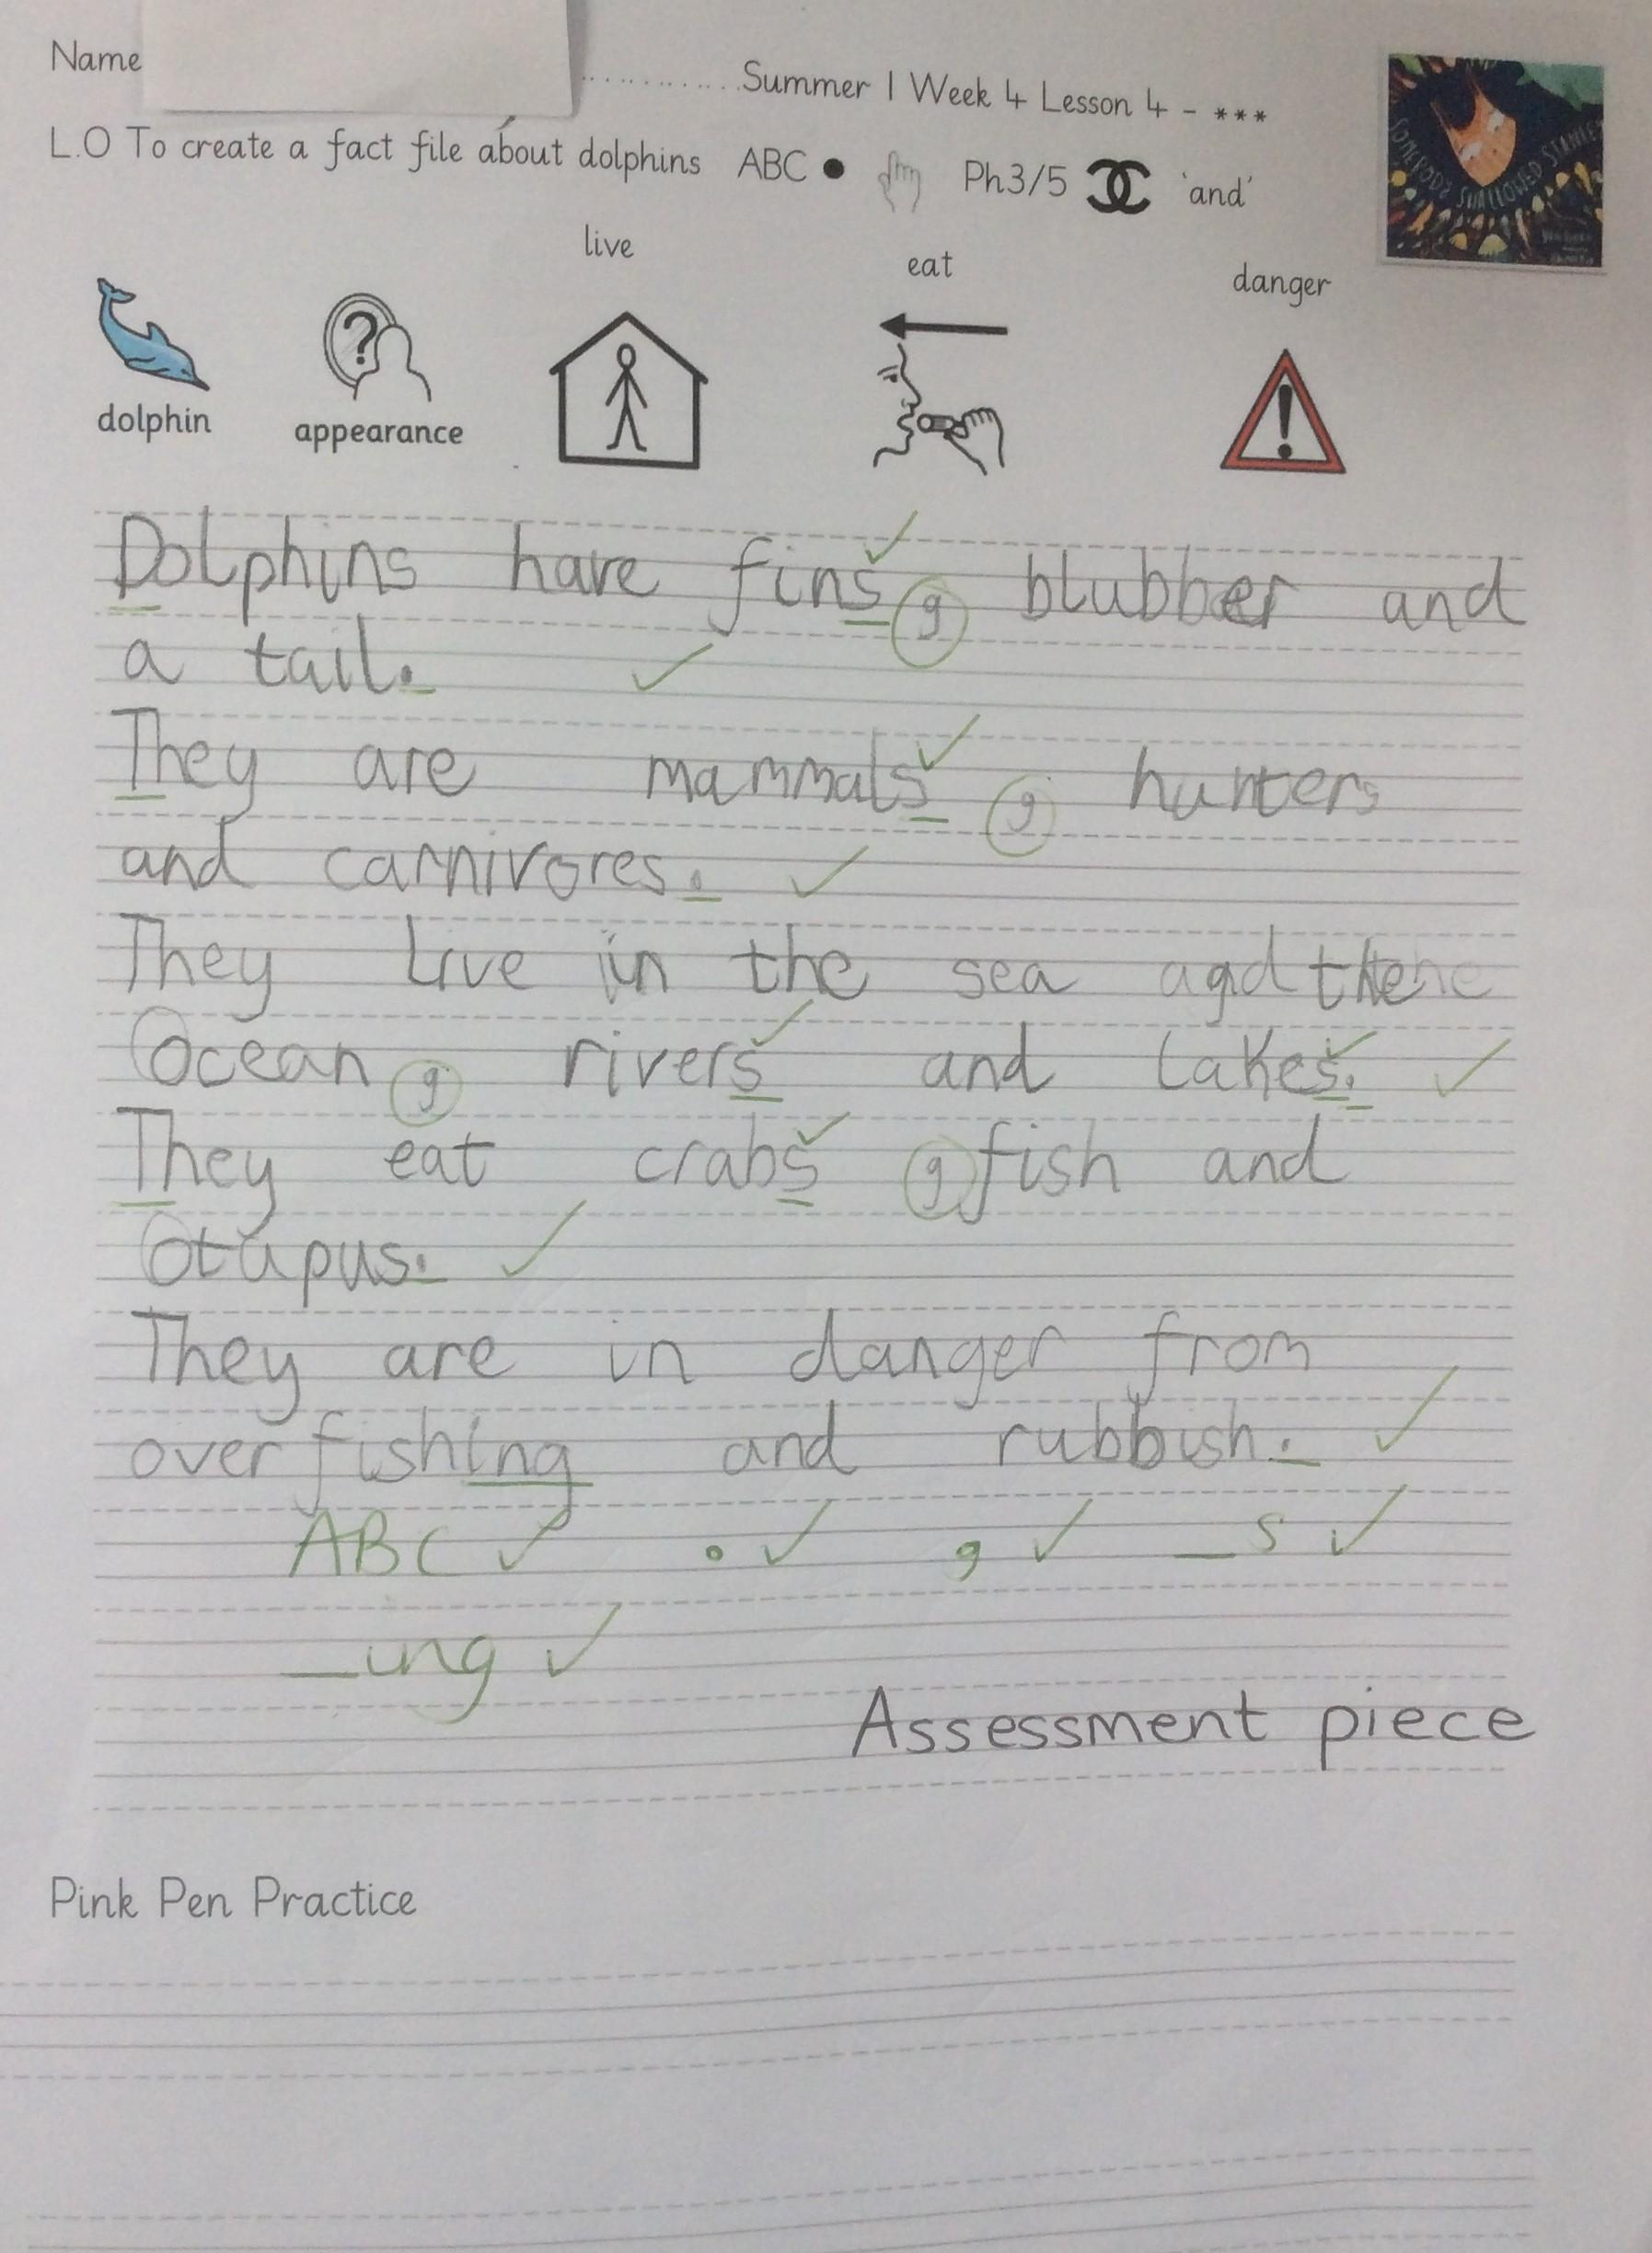 Name ............ Summer 1 Week 4 Lesson 4 - ***
L.O To create a fact file about dolphins ABC ● Ph3/5 'and'
SOMEBODY SWALLOWED STANLEY
live
eat
danger
dolphin
appearance
Dolphins have fins, blubber and
a tail.
They are mammals, hunters
and carnivores.
They live in the sea and the
Ocean, rivers and lakes.
They eat crabs, fish and
Otapus.
They are in danger from
over fishing and rubbish.
ABC ✓ . ✓ , ✓ _s ✓
_ing ✓
Assessment piece
Pink Pen Practice